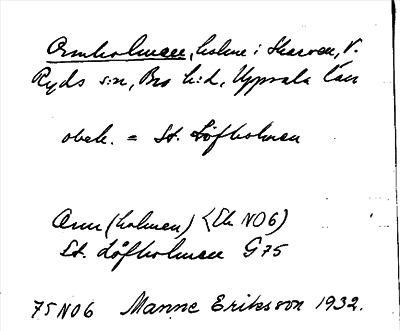 Ormholmen, holme i Skarven, V.
Ryds s:n, Bro h:d, Uppsala län
obek. = St. Löfholmen
Orm(holmen) (Ek NO6)
St. Löfholmen G75
75NO6 Manne Eriksson 1932.